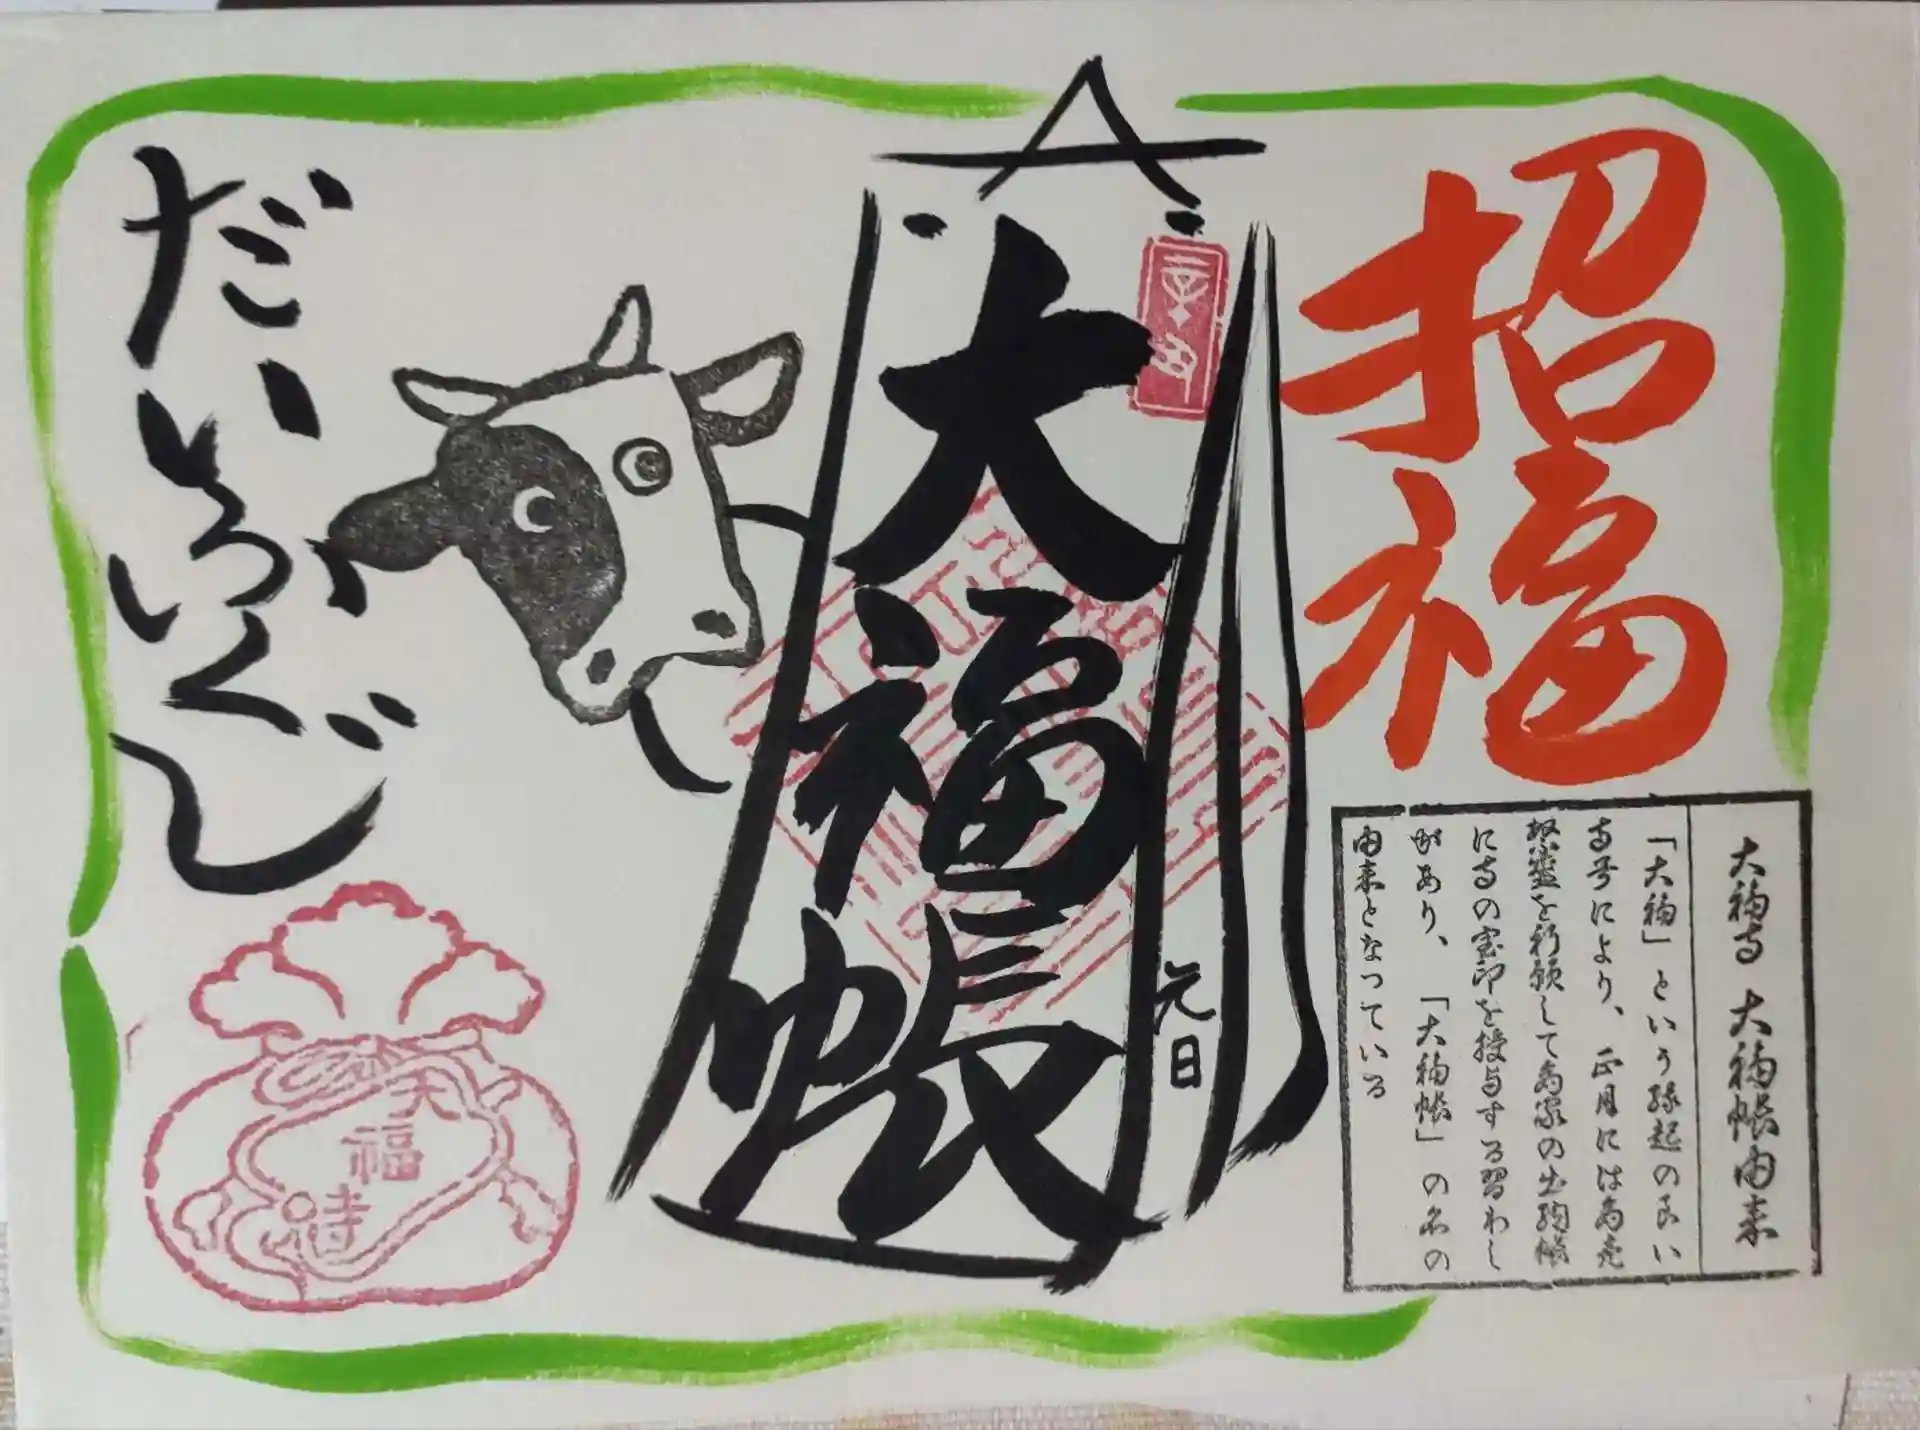 招福
大福帳
元日
大福寺 大福帳由来
「大福」という縁起の良い
寺号により、正月には商売
繁盛を祈願して商家の出納帳
に寺の宝印を授与する習わし
があり、「大福帳」の名の
由来となっている
だいふくじ
大
福
寺